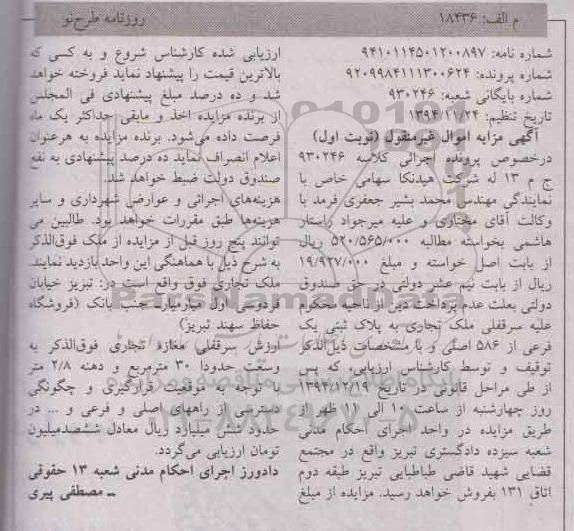 م الف: ۱۸۴۳۶
روزنامه طرح‌نو
شماره نامه: ۹۴۱۰۱۱۴۵۰۱۲۰۰۸۹۷
شماره پرونده: ۹۲۰۹۹۸۴۱۱۱۳۰۰۶۲۴
شماره بایگانی شعبه: ۹۳۰۲۴۶
تاریخ تنظیم: ۱۳۹۴/۱۱/۲۴
آگهی مزایه اموال غیرمنقول (نوبت اول)
درخصوص پرونده اجرائی کلاسه ۹۳۰۲۴۶
ج م ۱۳ له شرکت هیدنکا سهامی خاص با
نمایندگی مهندس محمد بشیر جعفری فرمد با
وکالت آقای مختاری و علیه میرجواد راستار
هاشمی بخواسته مطالبه ۵۲۰/۵۶۵/۰۰۰ ریال
از بابت اصل خواسته و مبلغ ۱۹/۹۲۷/۰۰۰
ریال از بابت نیم عشر دولتی در حق صندوق
دولتی بعلت عدم پرداخت دین از ناحیه محکوم
علیه سرقفلی ملک تجاری به پلاک ثبتی یک
فرعی از ۵۸۶ اصلی و با مشخصات ذیل‌الذکر
توقیف و توسط کارشناس ارزیابی، که پس
از طی مراحل قانونی در تاریخ ۱۳۹۴/۱۲/۱۹
روز چهارشنبه از ساعت ۱۰ الی ۱۱ ظهر از
طریق مزایده در واحد اجرای احکام مدنی
شعبه سیزده دادگستری تبریز واقع در مجتمع
قضایی شهید قاضی طباطبایی تبریز طبقه دوم
اتاق ۱۳۱ بفروش خواهد رسید. مزایده از مبلغ
ارزیابی شده کارشناس شروع و به کسی که
بالاترین قیمت را پیشنهاد نماید فروخته خواهد
شد و ده درصد مبلغ پیشنهادی فی المجلس
از برنده مزایده اخذ و مابقی حداکثر یک ماه
فرصت داده می‌شود. برنده مزایده به هرعنوان
اعلام انصراف نماید ده درصد پیشنهادی به نفع
صندوق دولت ضبط خواهد شد.
هزینه‌های اجرائی و عوارض شهرداری و سایر
هزینه‌ها طبق مقررات خواهد بود. طالبین می
توانند پنج روز قبل از مزایده از ملک فوق‌الذکر
به شرح ذیل با هماهنگی این واحد بازدید نمایند.
ملک تجاری فوق واقع است در: تبریز خیابان
فردوسی اول میارمیار جنب بانک (فروشگاه
حفاظ سهند تبریز)
ارزش سرقفلی مغازه تجاری فوق‌الذکر به
وسعت حدودا ۳۰ مترمربع و دهنه ۲/۸ متر
با توجه به موقعیت قرارگیری و چگونگی
دسترسی از راههای اصلی و فرعی و ... در
حدود شش میلیارد ریال معادل ششصدمیلیون
تومان ارزیابی می‌گردد.
دادورز اجرای احکام مدنی شعبه ۱۳ حقوقی
ـ مصطفی پیری